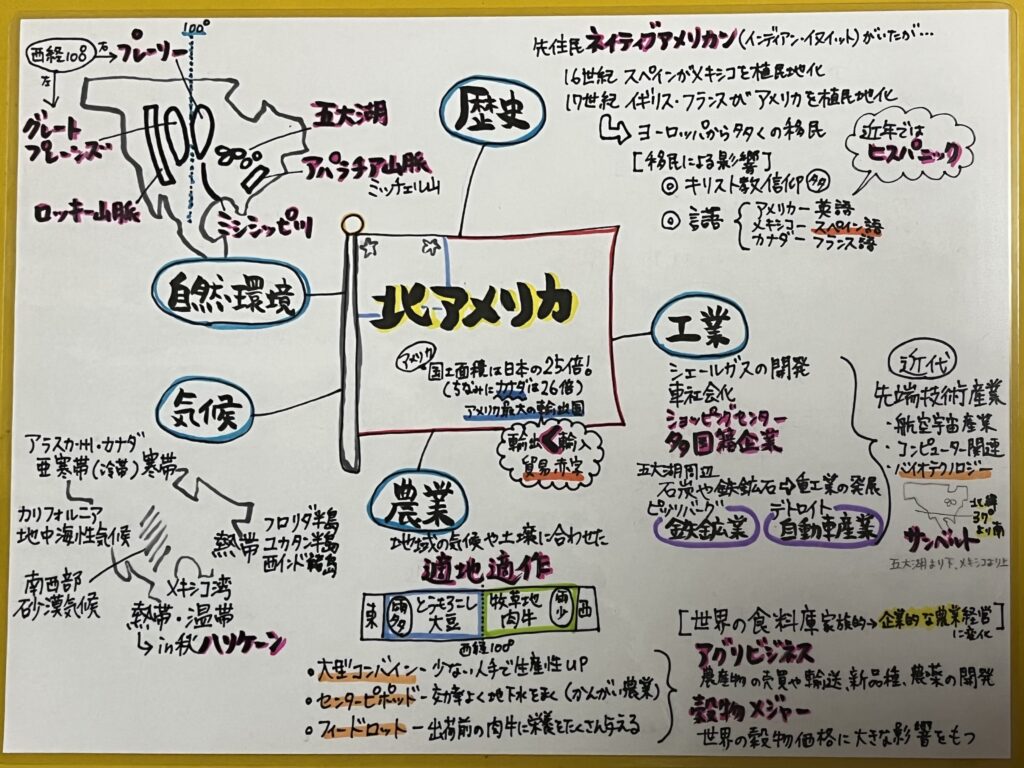 北アメリカ
アメリカ 国土面積は日本の25倍!
(ちなみにカナダは26倍)
アメリカ最大の輸出国
輸出く輸入
貿易赤字
自然環境
西経108
右
プレーリー
100°
左
グレート
プレーンズ
五大湖
アパラチア山脈
ミッチェル山
ロッキー山脈
ミシシッピ川
歴史
先住民 ネイティブアメリカン (インディアン・イヌイット) がいたが…
16世紀 スペインがメキシコを植民地化
17世紀 イギリス・フランスがアメリカを植民地化
ヨーロッパから多くの移民
[移民による影響]
◎ キリスト教信仰 多
◎ 言語
アメリカー 英語
メキシコー スペイン語
カナダー フランス語
近年では
ヒスパニック
工業
シェールガスの開発
車社会化
ショッピングセンター
多国籍企業
五大湖周辺
石炭や鉄鉱石⇨重工業の発展
ピッツバーグ
鉄鉱業
デトロイト
自動車産業
近代
先端技術産業
・航空宇宙産業
・コンピューター関連
・バイオテクノロジー
北緯
37°
より南
サンベルト
五大湖より下、メキシコより上
気候
アラスカ州・カナダ
亜寒帯(冷帯)寒帯
カリフォルニア
地中海性気候
南西部
砂漠気候
熱帯
フロリダ半島
ユカタン半島
西インド諸島
メキシコ湾
熱帯・温帯
↳ in秋 ハリケーン
農業
地域の気候や土壌に合わせた
適地適作
東
雨多
とうもろこし
大豆
牧草地
肉牛
雨少
西
西経100°
・大型コンバイン ー 少ない人手で生産性UP
・センターピポッド ー 効率よく地下水をまく (かんがい農業)
・フィードロット ー 出荷前の肉牛に栄養をたくさん与える
[世界の食料庫 家族的→企業的な農業経営
に変化
アグリビジネス
農産物の売買や輸送、新品種、農薬の開発
穀物メジャー
世界の穀物価格に大きな影響をもつ